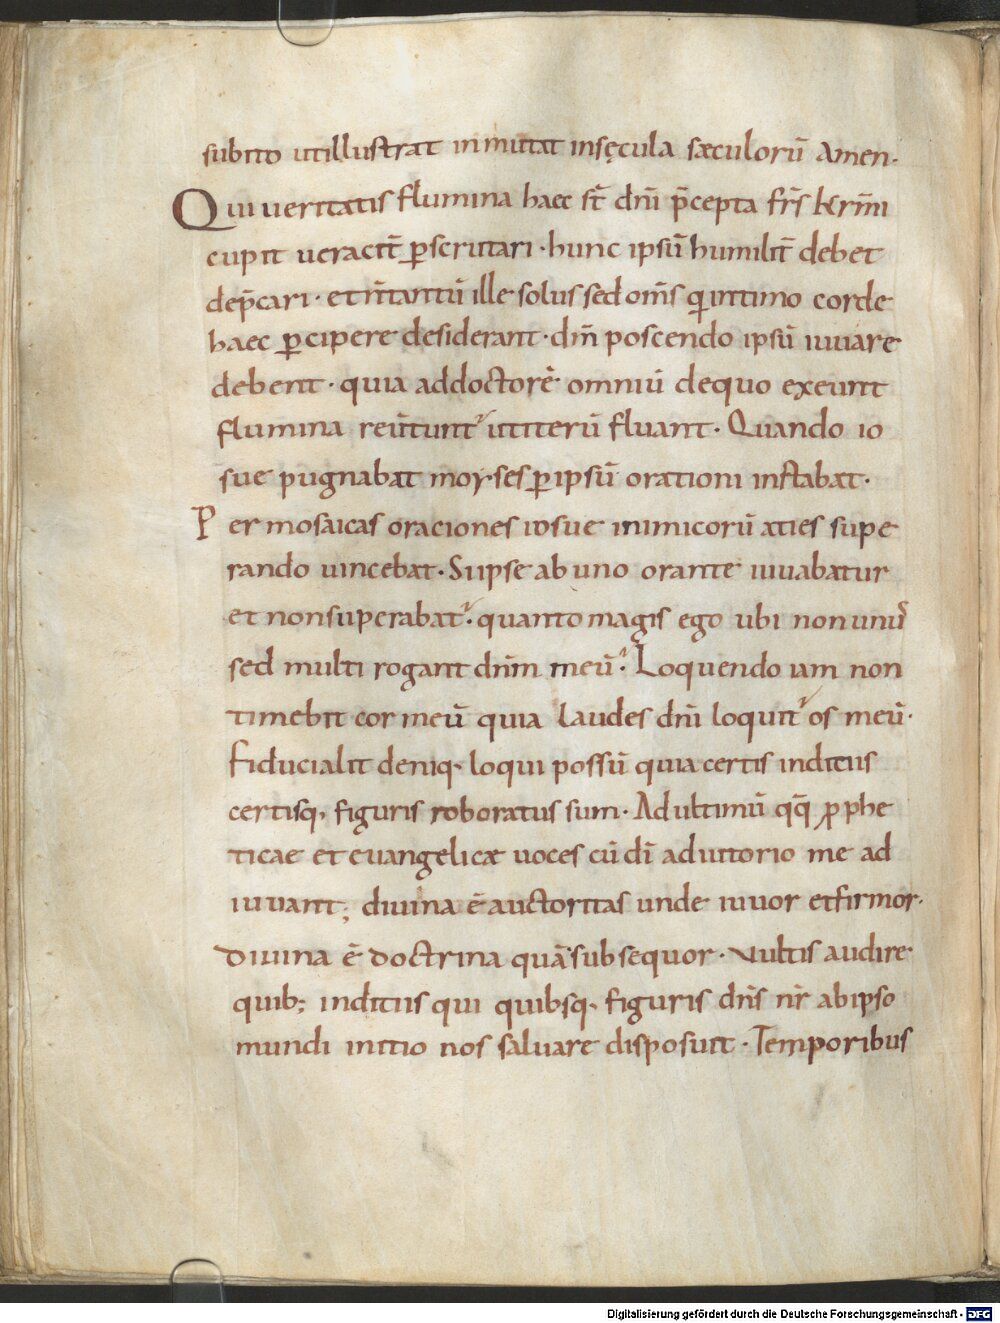 subito ut illustrat inmutat insęcula sæculorū amen.
Qui ueritatis flumina haec st̄ dn̄i p̄cepta fr̄s kr̄mi
cupit ueracit̄ ꝑscrutari · hunc ipsū humilit̄ debet
dep̄cari · et n̄ tantū ille solus sed om̄s qui intimo corde
haec ꝑcipere desiderant · dn̄m poscendo ipsū iuuare
debent · quia addoctorē omniū dequo exeunt
flumina reūtunt᷑ ut iterū fluant · Quando io
sue pugnabat moyses ꝑ ipsū orationi instabat ·
Per mosaicas oraciones iosue inimicorū aties supe
rando uincebat · Si ipse ab uno orante iuuabatur
et nonsuperabat᷑ · quanto magis ego ubi non unus
sed multi rogant dnm̄ meū · Loquendo iam non
timebit cor meū quia laudes dn̄i loquit᷑ os meū ·
fiducialit deniq· loqui possū quia certis inditiis
certisq, figuris roboratus sum · Ad ultimū qq̄ ꝓphe
ticae et euangelicæ uoces cū dī adiutorio me ad
iuuant; diuina ē auctoritas unde iuuor et firmor ·
diuina ē doctrina quā subsequor · Vultis audire
quib; inditiis qui quibsq· figuris dn̄s nr̄ ab ipso
mundi initio nos saluare disposuit · Temporibus
Digitalisierung gefördert durch die Deutsche Forschungsgemeinschaft - DFG